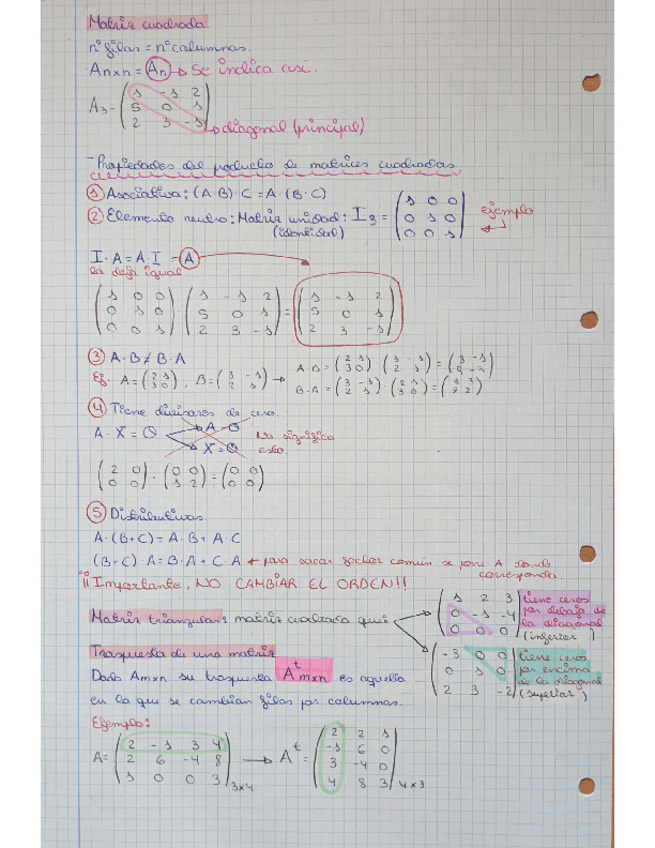 Matriz cuadrada
nº filas = nº columnas.
Anxn = An → Se indica así.
A3 = (1 -1 2
5 0 1
2 3 -1)
→ diagonal (principal)
- Propiedades del producto de matrices cuadradas.
① Asociativa: (A·B)·C = A·(B·C)
② Elemento neutro: Matriz unidad: I3 = (1 0 0
0 1 0
0 0 1) ejemplo
(identidad)
I·A = A·I = A
la deja igual
(1 0 0
0 1 0
0 0 1) (1 -1 2
5 0 1
2 3 -1) = (1 -1 2
5 0 1
2 3 -1)
③ A·B ≠ B·A
Ej. A = (2 1
3 0), B = (3 -1
2 1) → A·B = (2 1
3 0) (3 -1
2 1) =
B·A = (3 -1
2 1)·(2 1
3 0) =
④ Tiene divisores de cero.
A·X = O → A = O
→ X = O
No significa
esto.
(2 0
0 0)·(0 0
1 2) = (0 0
0 0)
⑤ Distributivas
A·(B+C) = A·B + A·C
(B+C)·A = B·A + C·A ← para sacar factor común se pone A donde
corresponda.
¡¡Importante, NO CAMBIAR EL ORDEN!!
Matriz triangular: matriz cuadrada que:
(1 2 3
0 -1 -4
0 0 0) tiene ceros
por debajo de
la diagonal
(inferior)
(-3 0 0
0 1 0
2 3 -2) tiene ceros
por encima
de la diagonal
(superior)
Traspuesta de una matriz
Dada Amxn su traspuesta Aᵗmxn es aquella
en la que se cambian filas por columnas.
Ejemplo:
A = (2 -1 3 4
2 6 -4 8
1 0 0 3) 3x4 → Aᵗ = (2 2 1
-1 6 0
3 -4 0
4 8 3) 4x3